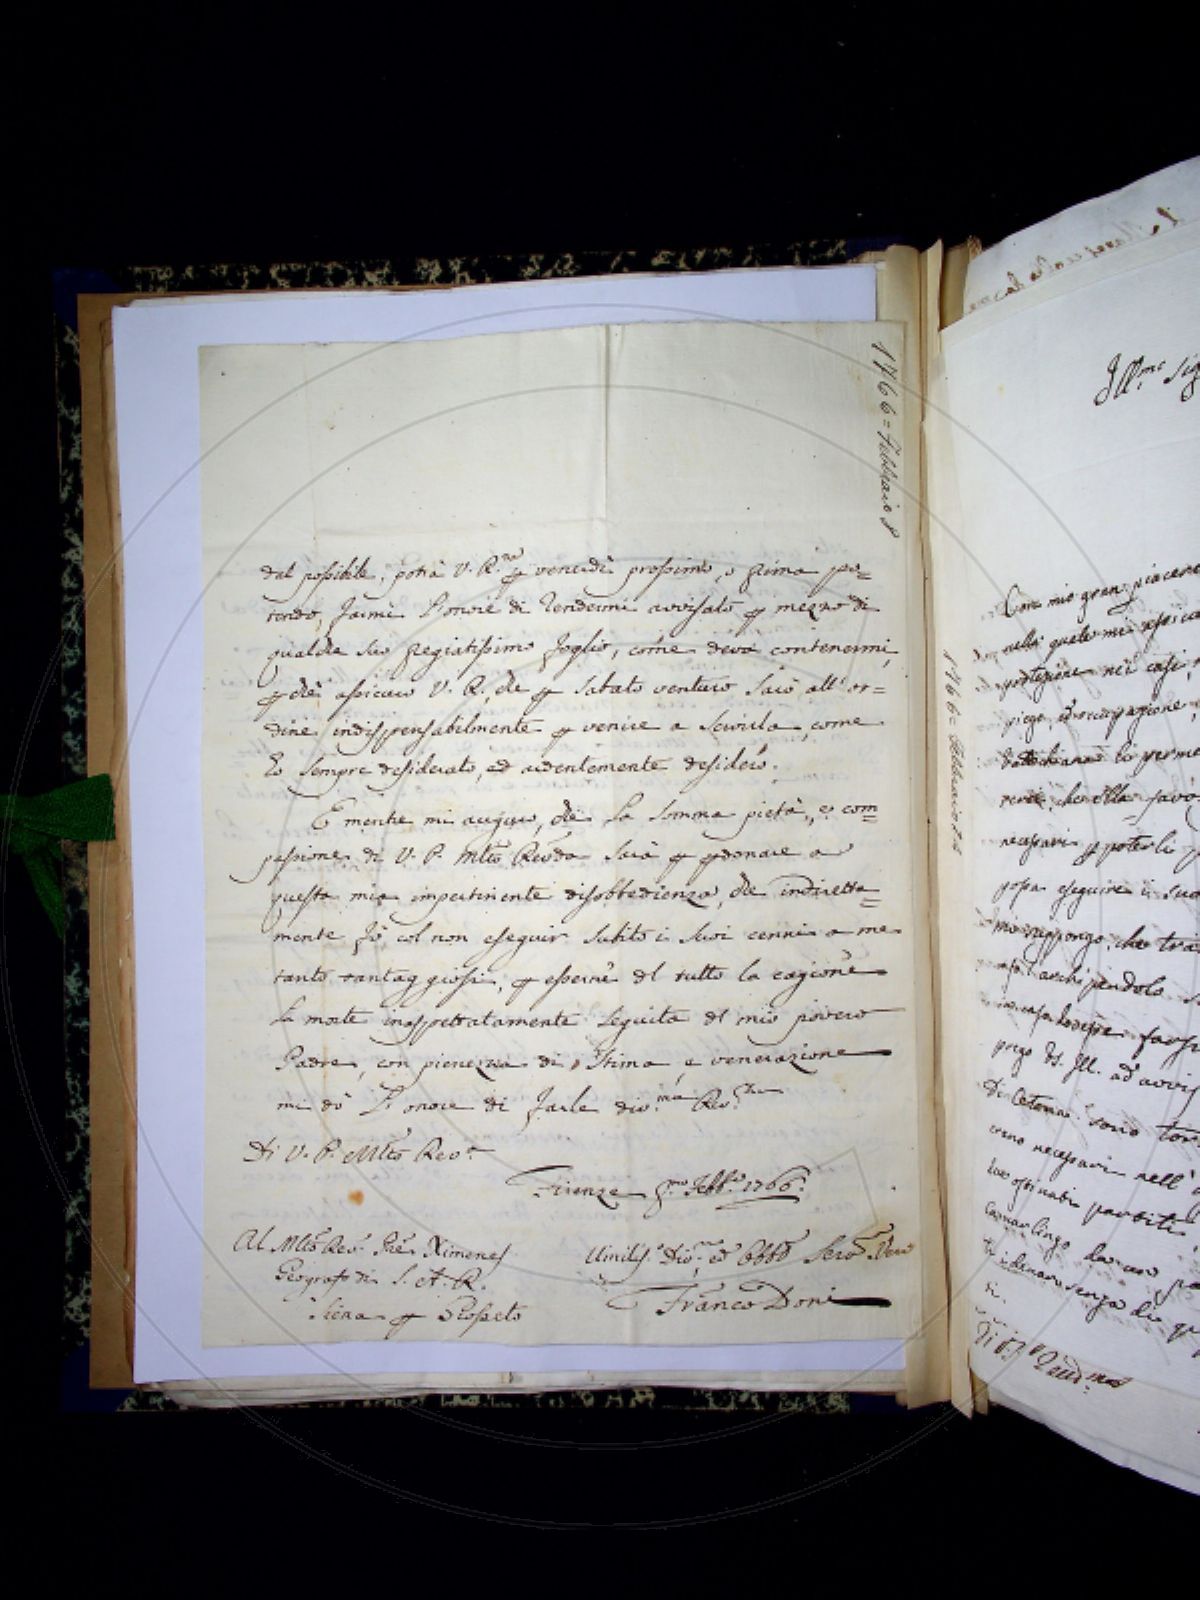 1766 = Febbraio P
del possibile, potrà V. R.ma p venerdì prossimo, o prima po=
tendo, farmi l'onore di rendermi avvisato p mezzo di
qualche suo pregiatissimo foglio, come devo contenermi,
p che assicuro V. R. che p sabato venturo sarò all' or=
dine indispensabilmente p venire a servirla, come
hò sempre desiderato, ed ardentemente desidero.
E mentre mi auguro, che la somma pietà, e com=
passione di V. P. Mlto Revda sarà p pdonare a
questa mia impertinente disobbedienza, che indiretta=
mente fò col non eseguir subito i suoi cenni a me
tanto vantaggiosi, p esserne del tutto la cagione
la morte inaspettatamente seguita del mio povero
Padre, con pienezza di stima, e venerazione
mi dò l'onore di farle dio.ma Rev.
Di V. P. Mlto Rev.
Firenze pmo Febb.o 1766.
Al Mlto Rev. Pre Ximenes
Geografo di S. A. R.
Siena p Grosseto
Umilis. Div. ed Obb Serv. Vero
Franco Doni
1766 = Febbraio
Ill.mo Sig
Con mio gran piacere
nella quale mi
protezione nei casi,
piego, ed occupazione
Vallechiana li perme
verà, che Ella favo
necessari p poterli
possa eseguire i suo
mi suppongo, che tra
pongo V.S. Ill. ad avvis
Di Cetona. sono tor
erano necessari nell'
due ostinati partiti,
camarlingo
denaro senza che qu
ti.
Di